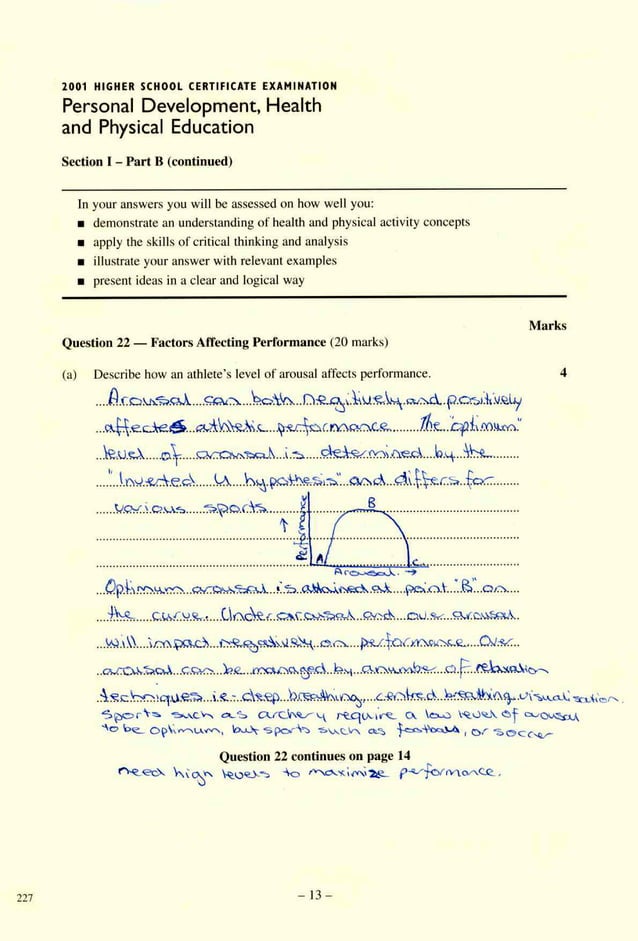 2001 HIGHER SCHOOL CERTIFICATE EXAMINATION
Personal Development, Health
and Physical Education
Section I – Part B (continued)
In your answers you will be assessed on how well you:
■ demonstrate an understanding of health and physical activity concepts
■ apply the skills of critical thinking and analysis
■ illustrate your answer with relevant examples
■ present ideas in a clear and logical way
Marks
Question 22 — Factors Affecting Performance (20 marks)
(a) Describe how an athlete's level of arousal affects performance. 4
Arousal can both negitively and positively
affectes athletic performance. The "optimum"
level of arousal is determined by the
"Inverted U hypothesis" and differs for
various sports
Performance →
B
A
C
Arousal →
Optimum arousal is attained at point "B" on
the curve. Under arousal and over arousal
will impact negatively on performance. Over
arousal can be managed by a number of relaxation
techniques i.e - deep breathing, centred breathing, visualisation.
Sports such as archery require a low level of arousal
to be optimum, but sports such as football, or soccer
Question 22 continues on page 14
need high levels to maximize performance.
227
– 13 –